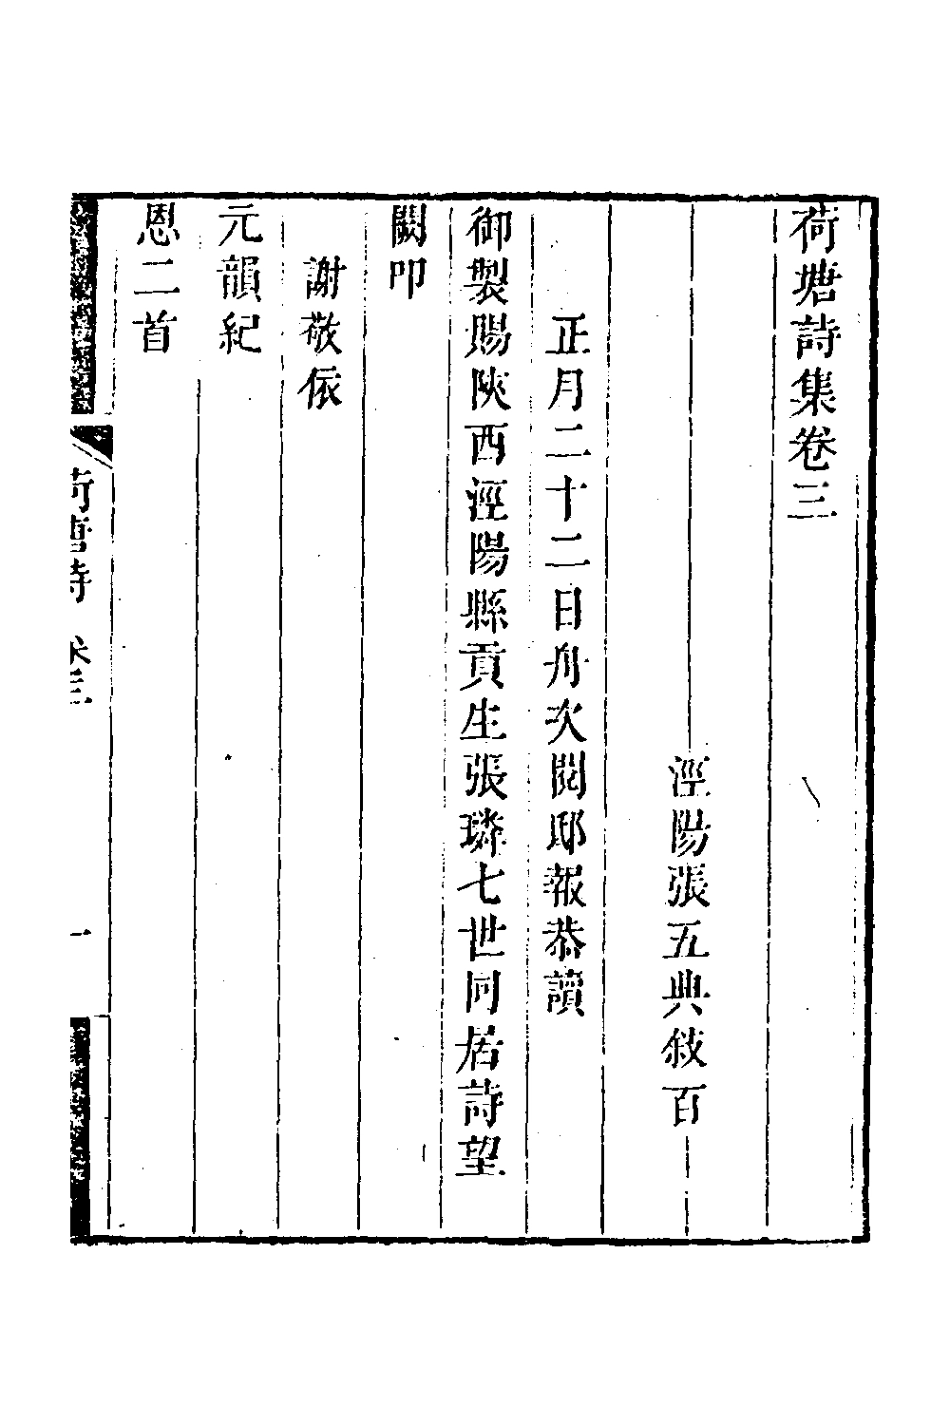 荷塘詩集卷三
涇陽張五典敘百
正月二十二日舟次閱邸報恭讀
御製賜陝西涇陽縣貢生張璘七世同居詩望
闕叩
謝敬依
元韻紀
恩二首
荷塘詩 卷三 一